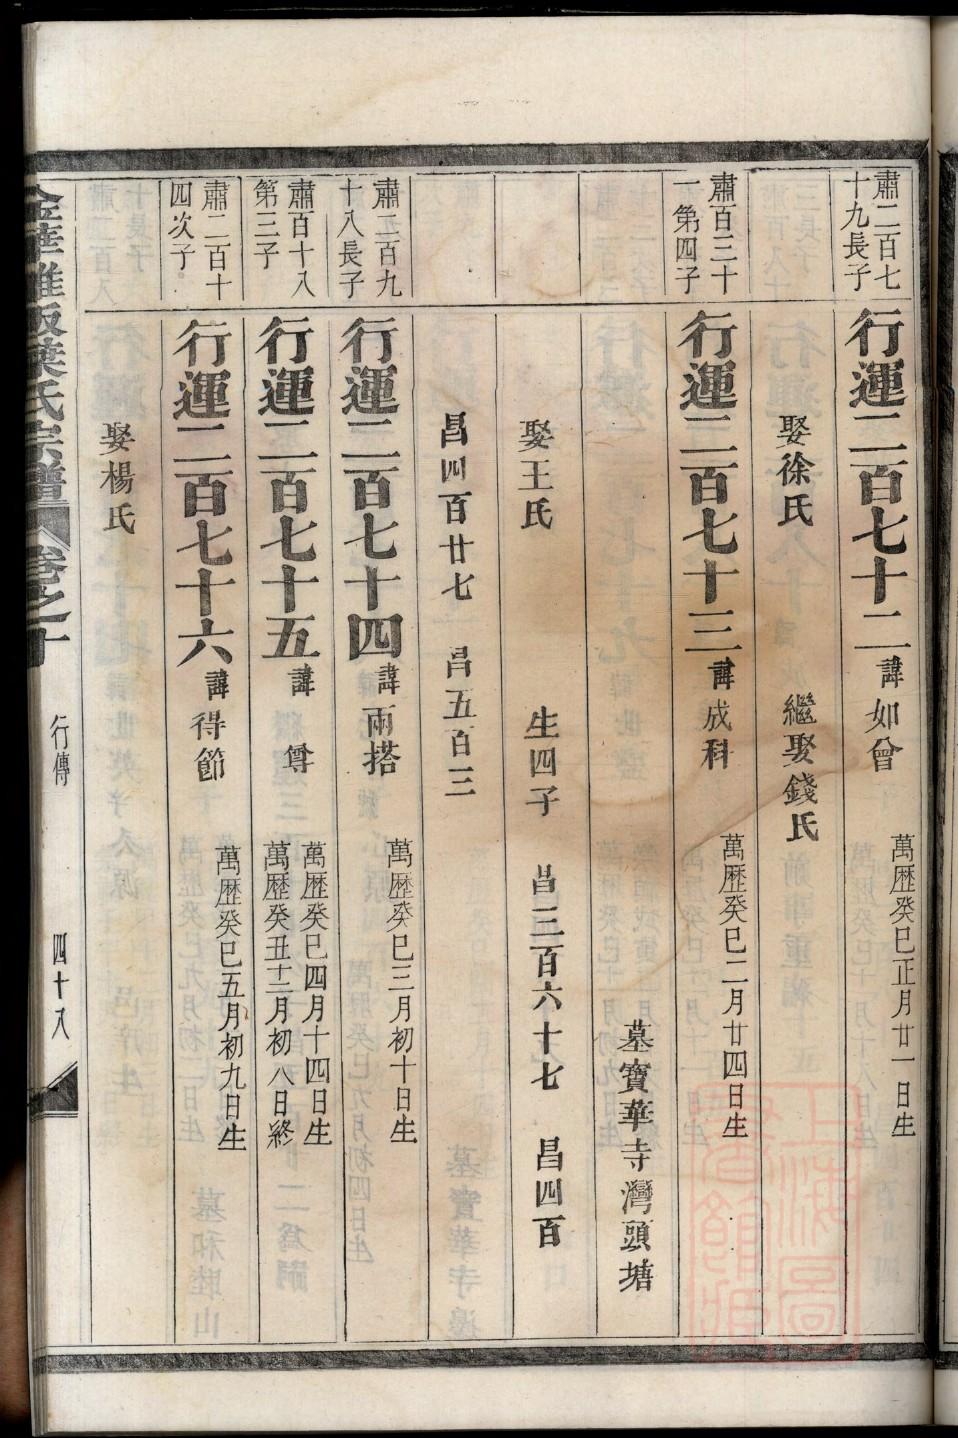 肅二百七
十九長子
行運二百七十二 諱如曾 萬歷癸巳正月廿一日生
娶徐氏 繼娶錢氏
肅百三十
一第四子
行運二百七十三 諱成科 萬歷癸巳二月廿四日生
墓寶華寺灣頭塘
娶王氏 生四子 昌三百六十七 昌四百
昌四百廿七 昌五百三
肅二百九
十八長子
行運二百七十四 諱兩搭 萬歷癸巳三月初十日生
肅百十八
第三子
行運二百七十五 諱尊 萬歷癸巳四月十四日生
萬歷癸丑十二月初八日終
肅二百十
四次子
行運二百七十六 諱得節 萬歷癸巳五月初九日生
娶楊氏
葉氏宗譜 卷之十 行傳 四十八